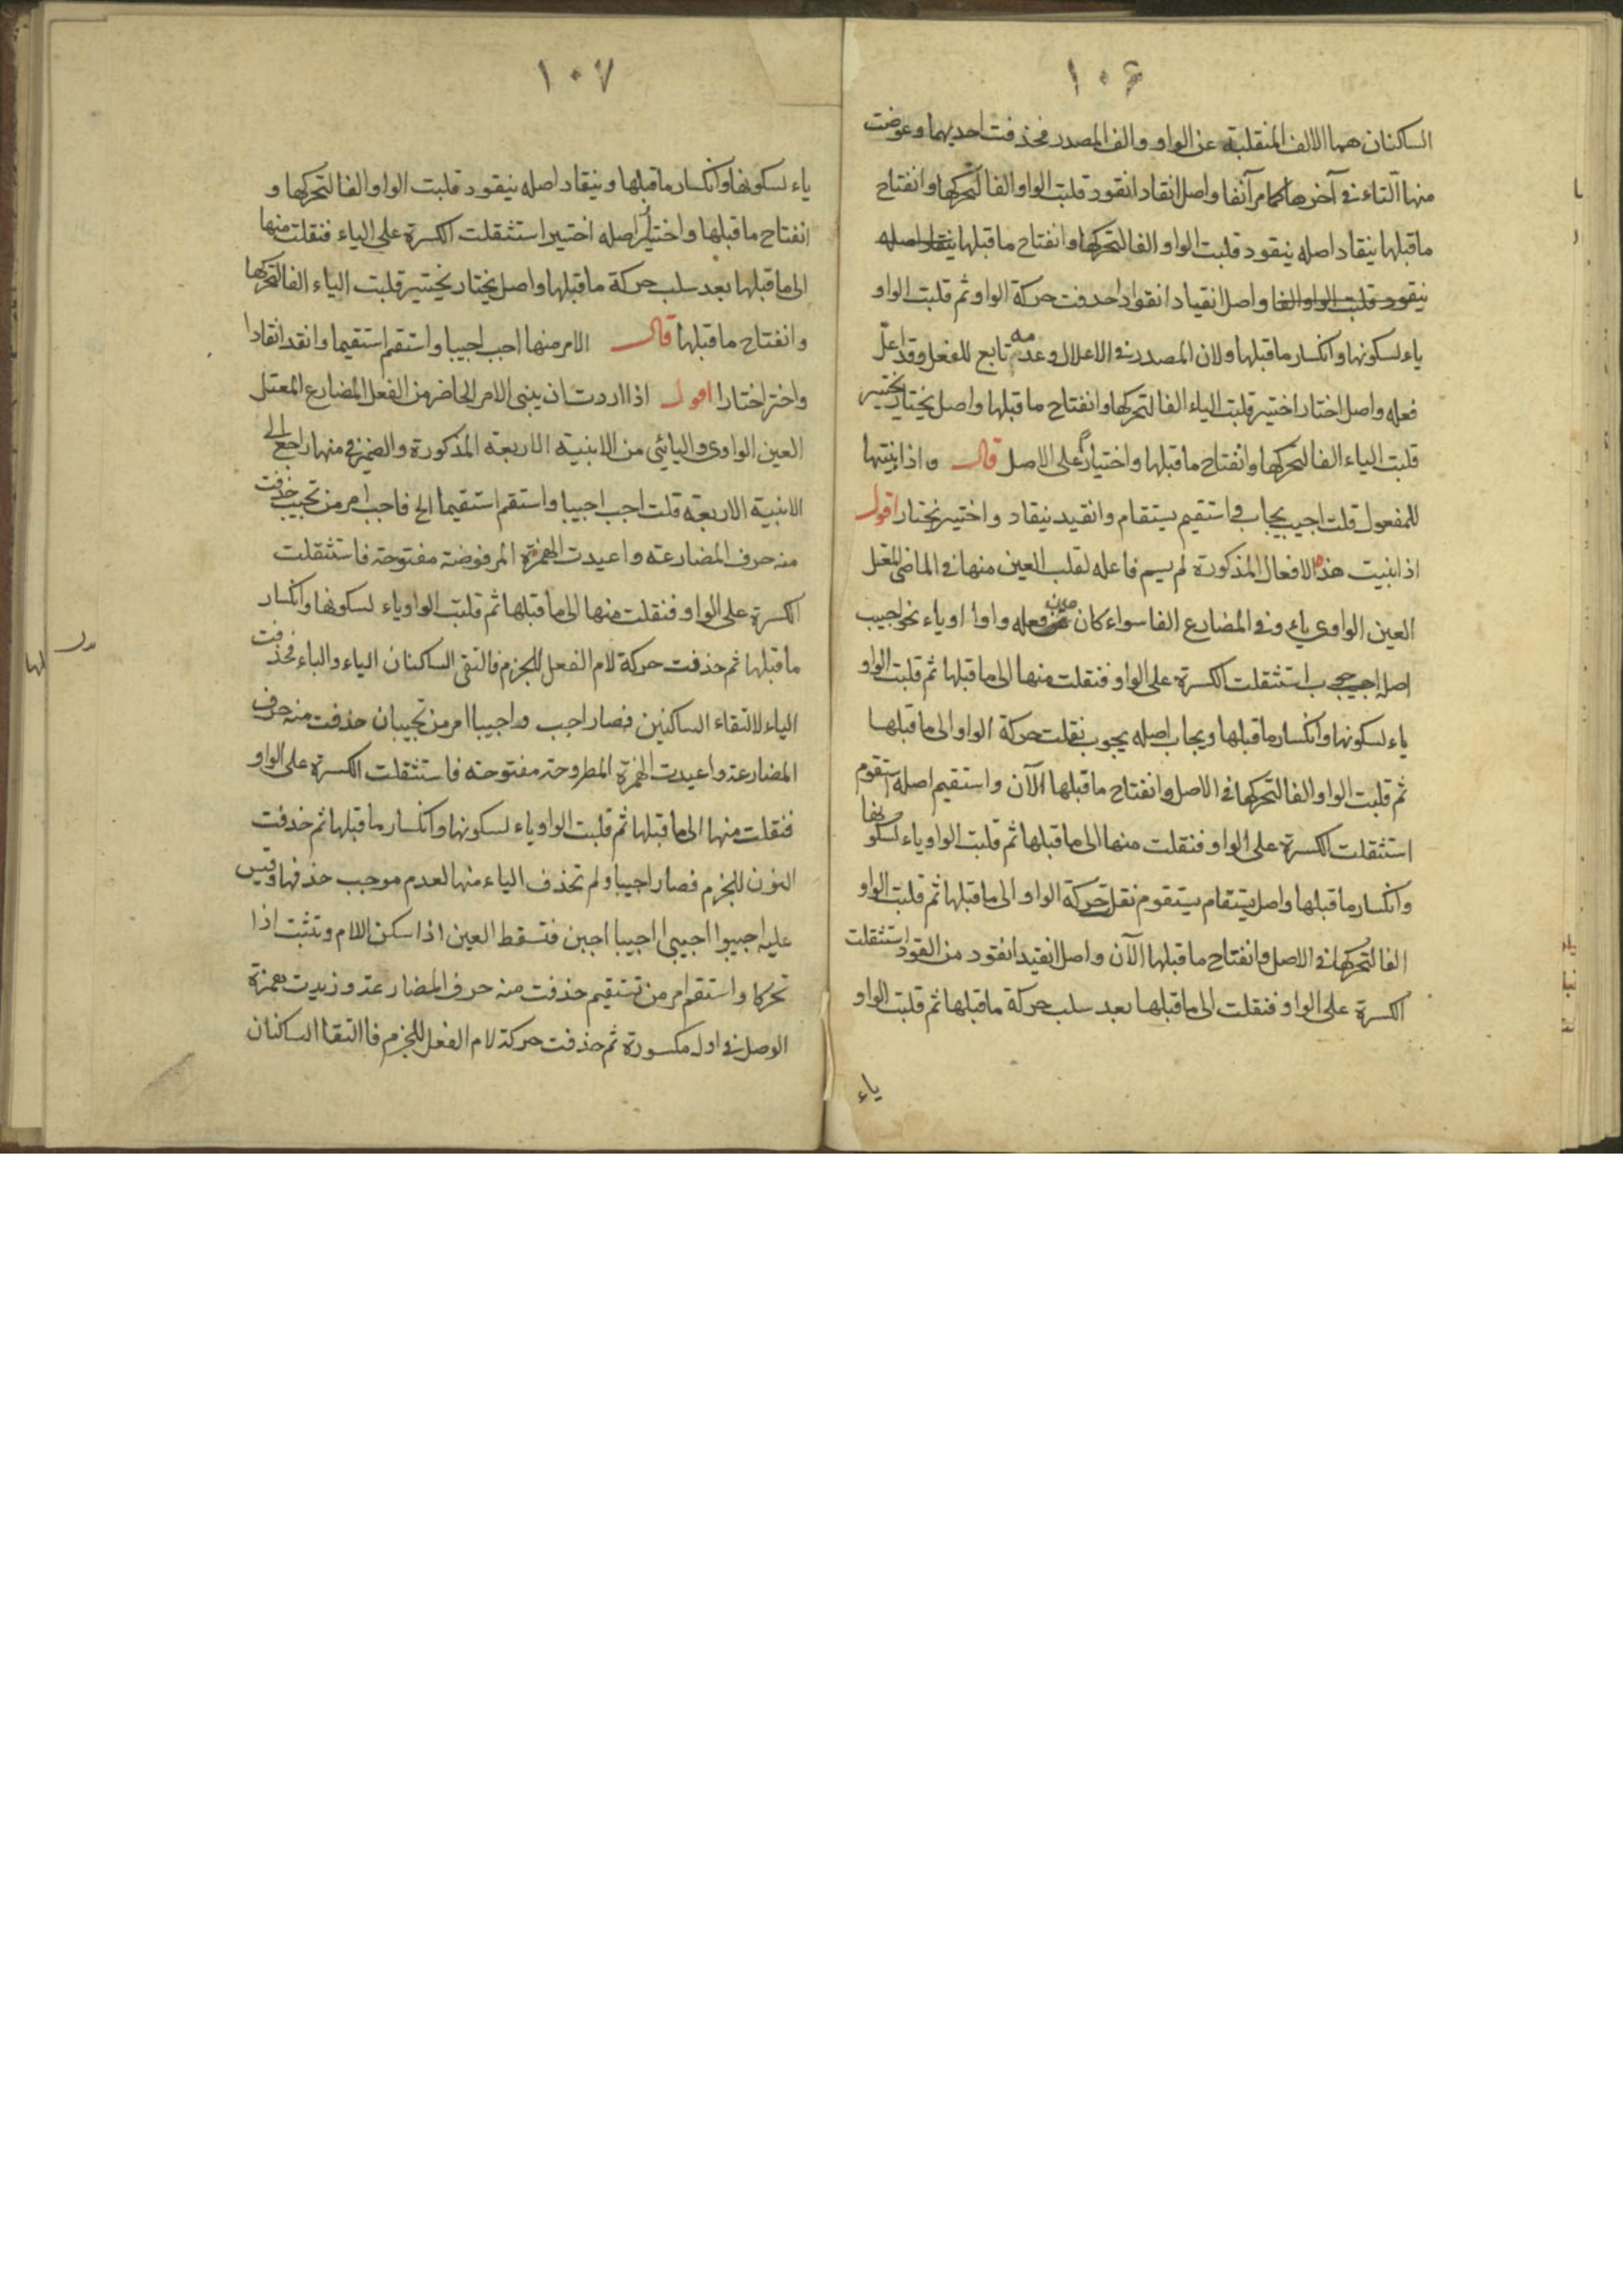 ١٠٦
الساكنان هما الالف المنقلبة عن الواو والف المصدر فحذفت احديهما وعوضت
منها التاء في آخرها كما مر آنفا واصل انقاد انقود قلبت الواو الفا لتحركها وانفتاح
ماقبلها ينقاد اصله ينقود قلبت الواو الفا لتحركها وانفتاح ماقبلها ينقاد اصله
ينقود قلبت الواو الفا واصل انقياد انقوادا حدفت حركة الواو ثم قلبت الواو
ياء لسكونها وانكسار ماقبلها ولان المصدر في الاعلال وعدمه تابع للفعل وقد اعلّ
فعله واصل اختار اختير قلبت الياء الفا لتحركها وانفتاح ماقبلها واصل يختار يختير
قلبت الياء الفا لتحركها وانفتاح ماقبلها واختيارً على الاصل قال واذا بنيتها
للمفعول قلت اجيب يجاب في استقيم يستقام وانقيد ينقاد واختير يختار اقول
اذا بنيت هذه الافعال المذكورة لم يسم فاعله لقلب العين منها في الماضى المعتل
العين الواوى ياء وفي المضارع الفا سواء كان عين فعله واوا او ياء نحو اجيب
اصله اجوب استثقلت الكسرة على الواو فنقلت منها الى ماقبلها ثم قلبت الواو
ياء لسكونها وانكسار ماقبلها ويجاب اصله يجوب نقلت حركة الواو الى ماقبلها
ثم قلبت الواو الفا لتحركها في الاصل وانفتاح ماقبلها الآن واستقيم اصله استقوم
استثقلت الكسرة على الواو فنقلت منها الى ماقبلها ثم قلبت الواو ياء لسكونها
وانكسار ماقبلها واصل يستقام يستقوم نقل حركة الواو الى ماقبلها ثم قلبت الواو
الفا لتحركها في الاصل وانفتاح ماقبلها الآن واصل انقيد انقود من القود استثقلت
الكسرة على الواو فنقلت الى ماقبلها بعد سلب حركة ماقبلها ثم قلبت الواو
ياء
١٠٧
ياء لسكونها وانكسار ماقبلها وينقاد اصله ينقود قلبت الواو الفا لتحركها و
انفتاح ماقبلها واختير اصله اختير استثقلت الكسرة على الياء فنقلت منها
الى ماقبلها بعد سلب حركة ماقبلها واصل يختار يختير قلبت الياء الفا لتحركها
وانفتاح ماقبلها قال الامر منها اجب اجيبا واستقم استقيما وانقد انقادا
واختر اختارا اقول اذا اردت ان يبنى الامر الحاضر من الفعل المضارع المعتل
العين الواوى واليائى من الابنية الاربعة المذكورة والضمير في منها راجع الى
الابنية الاربعة قلت اجب اجيبا واستقم استقيما الخ فاجب امر من تجيب حذفت
منه حرف المضارعة واعيدت الهمزة المرفوضة مفتوحة فاستثقلت
الكسرة على الواو فنقلت منها الى ماقبلها ثم قلبت الواو ياء لسكونها وانكسار
ماقبلها ثم حذفت حركة لام الفعل للجزم فالتقى الساكنان الياء والباء فحذفت
الياء لالتقاء الساكنين فصار اجب واجيبا امر من تجيبان حذفت منه حرف
المضارعة واعيدت الهمزة المطروحة مفتوحة فاستثقلت الكسرة على الواو
فنقلت منها الى ماقبلها ثم قلبت الواو ياء لسكونها وانكسار ماقبلها ثم حذفت
النون للجزم فصار اجيبا ولم تحذف الياء منها لعدم موجب حذفها وقيس
عليه اجيبوا اجيبى اجيبا اجبن فتسقط العين اذا سكن اللام وتثبت اذا
تحركا واستقم امر من تستقيم حذفت منه حرف المضارعة وزيدت همزة
الوصل في اوله مكسورة ثم حذفت حركة لام الفعل للجزم فاالتقا الساكنان